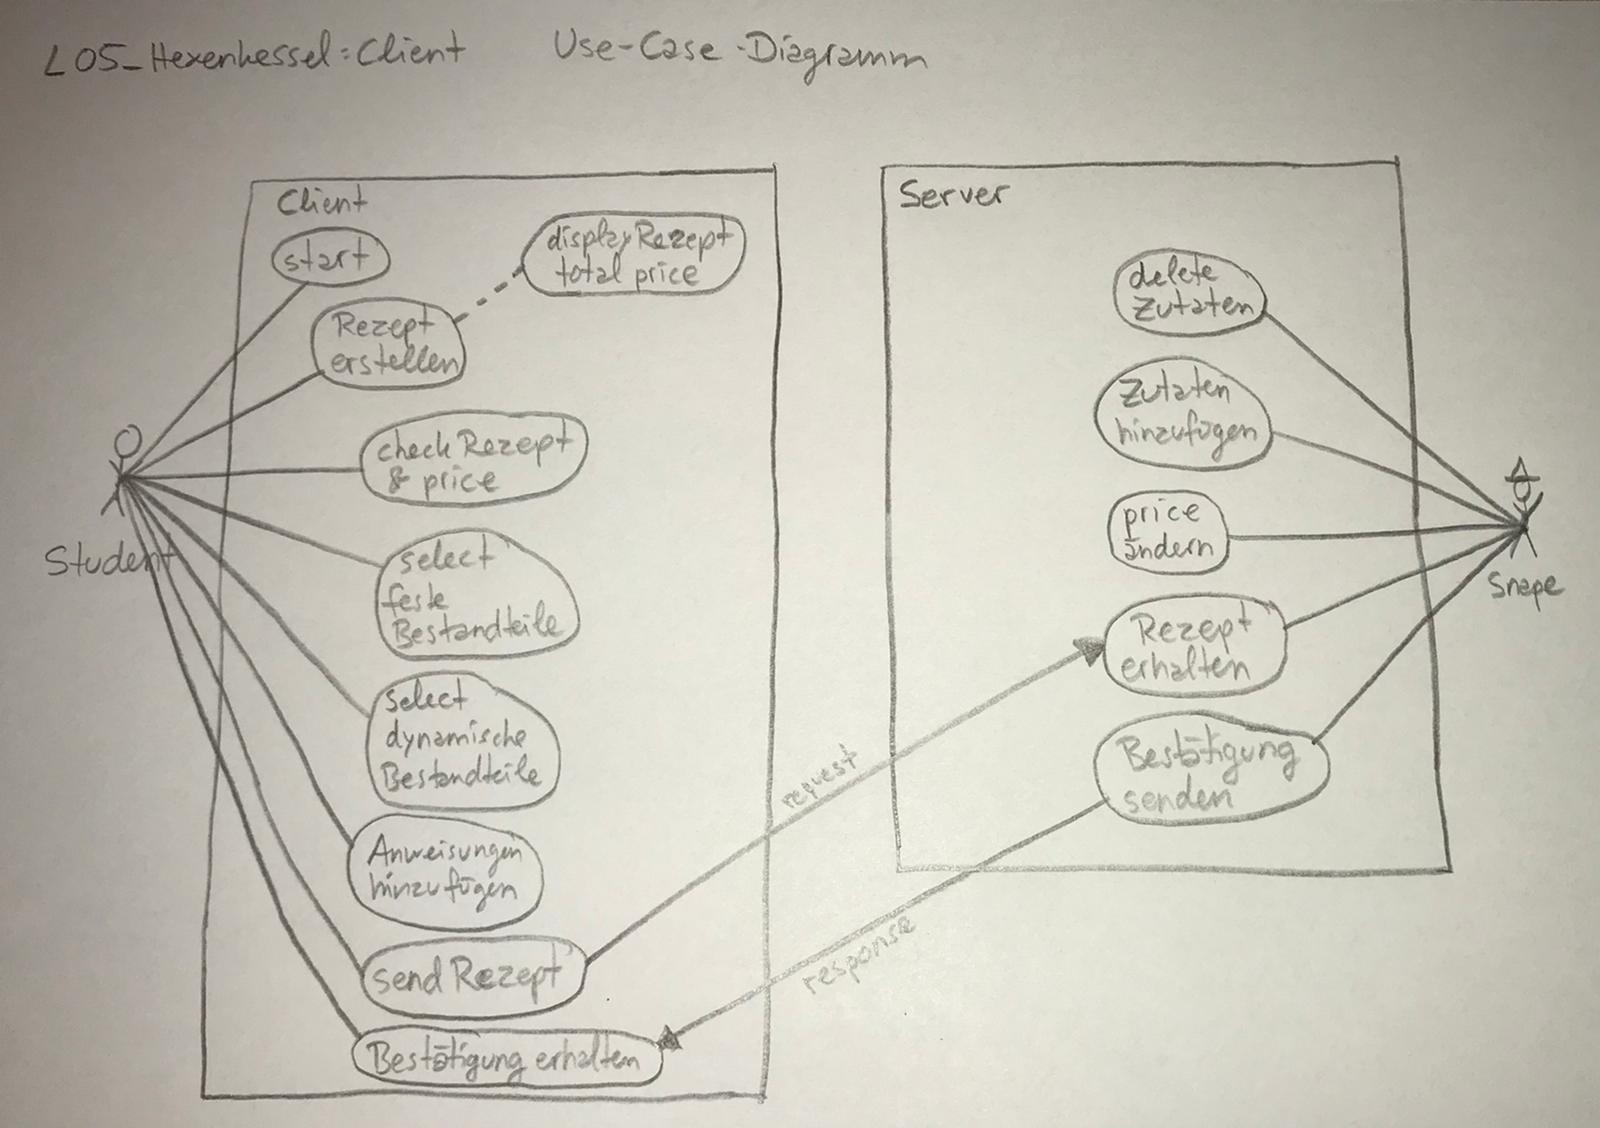 L05_Hexenkessel:Client Use-Case-Diagramm
Client
start
displayRezept
total price
Rezept
erstellen
check Rezept
& price
Student
select
feste
Bestandteile
select
dynamische
Bestandteile
Anweisungen
hinzufügen
send Rezept
Bestätigung erhalten
request
response
Server
delete
Zutaten
Zutaten
hinzufügen
price
ändern
Rezept
erhalten
Bestätigung
senden
Snape